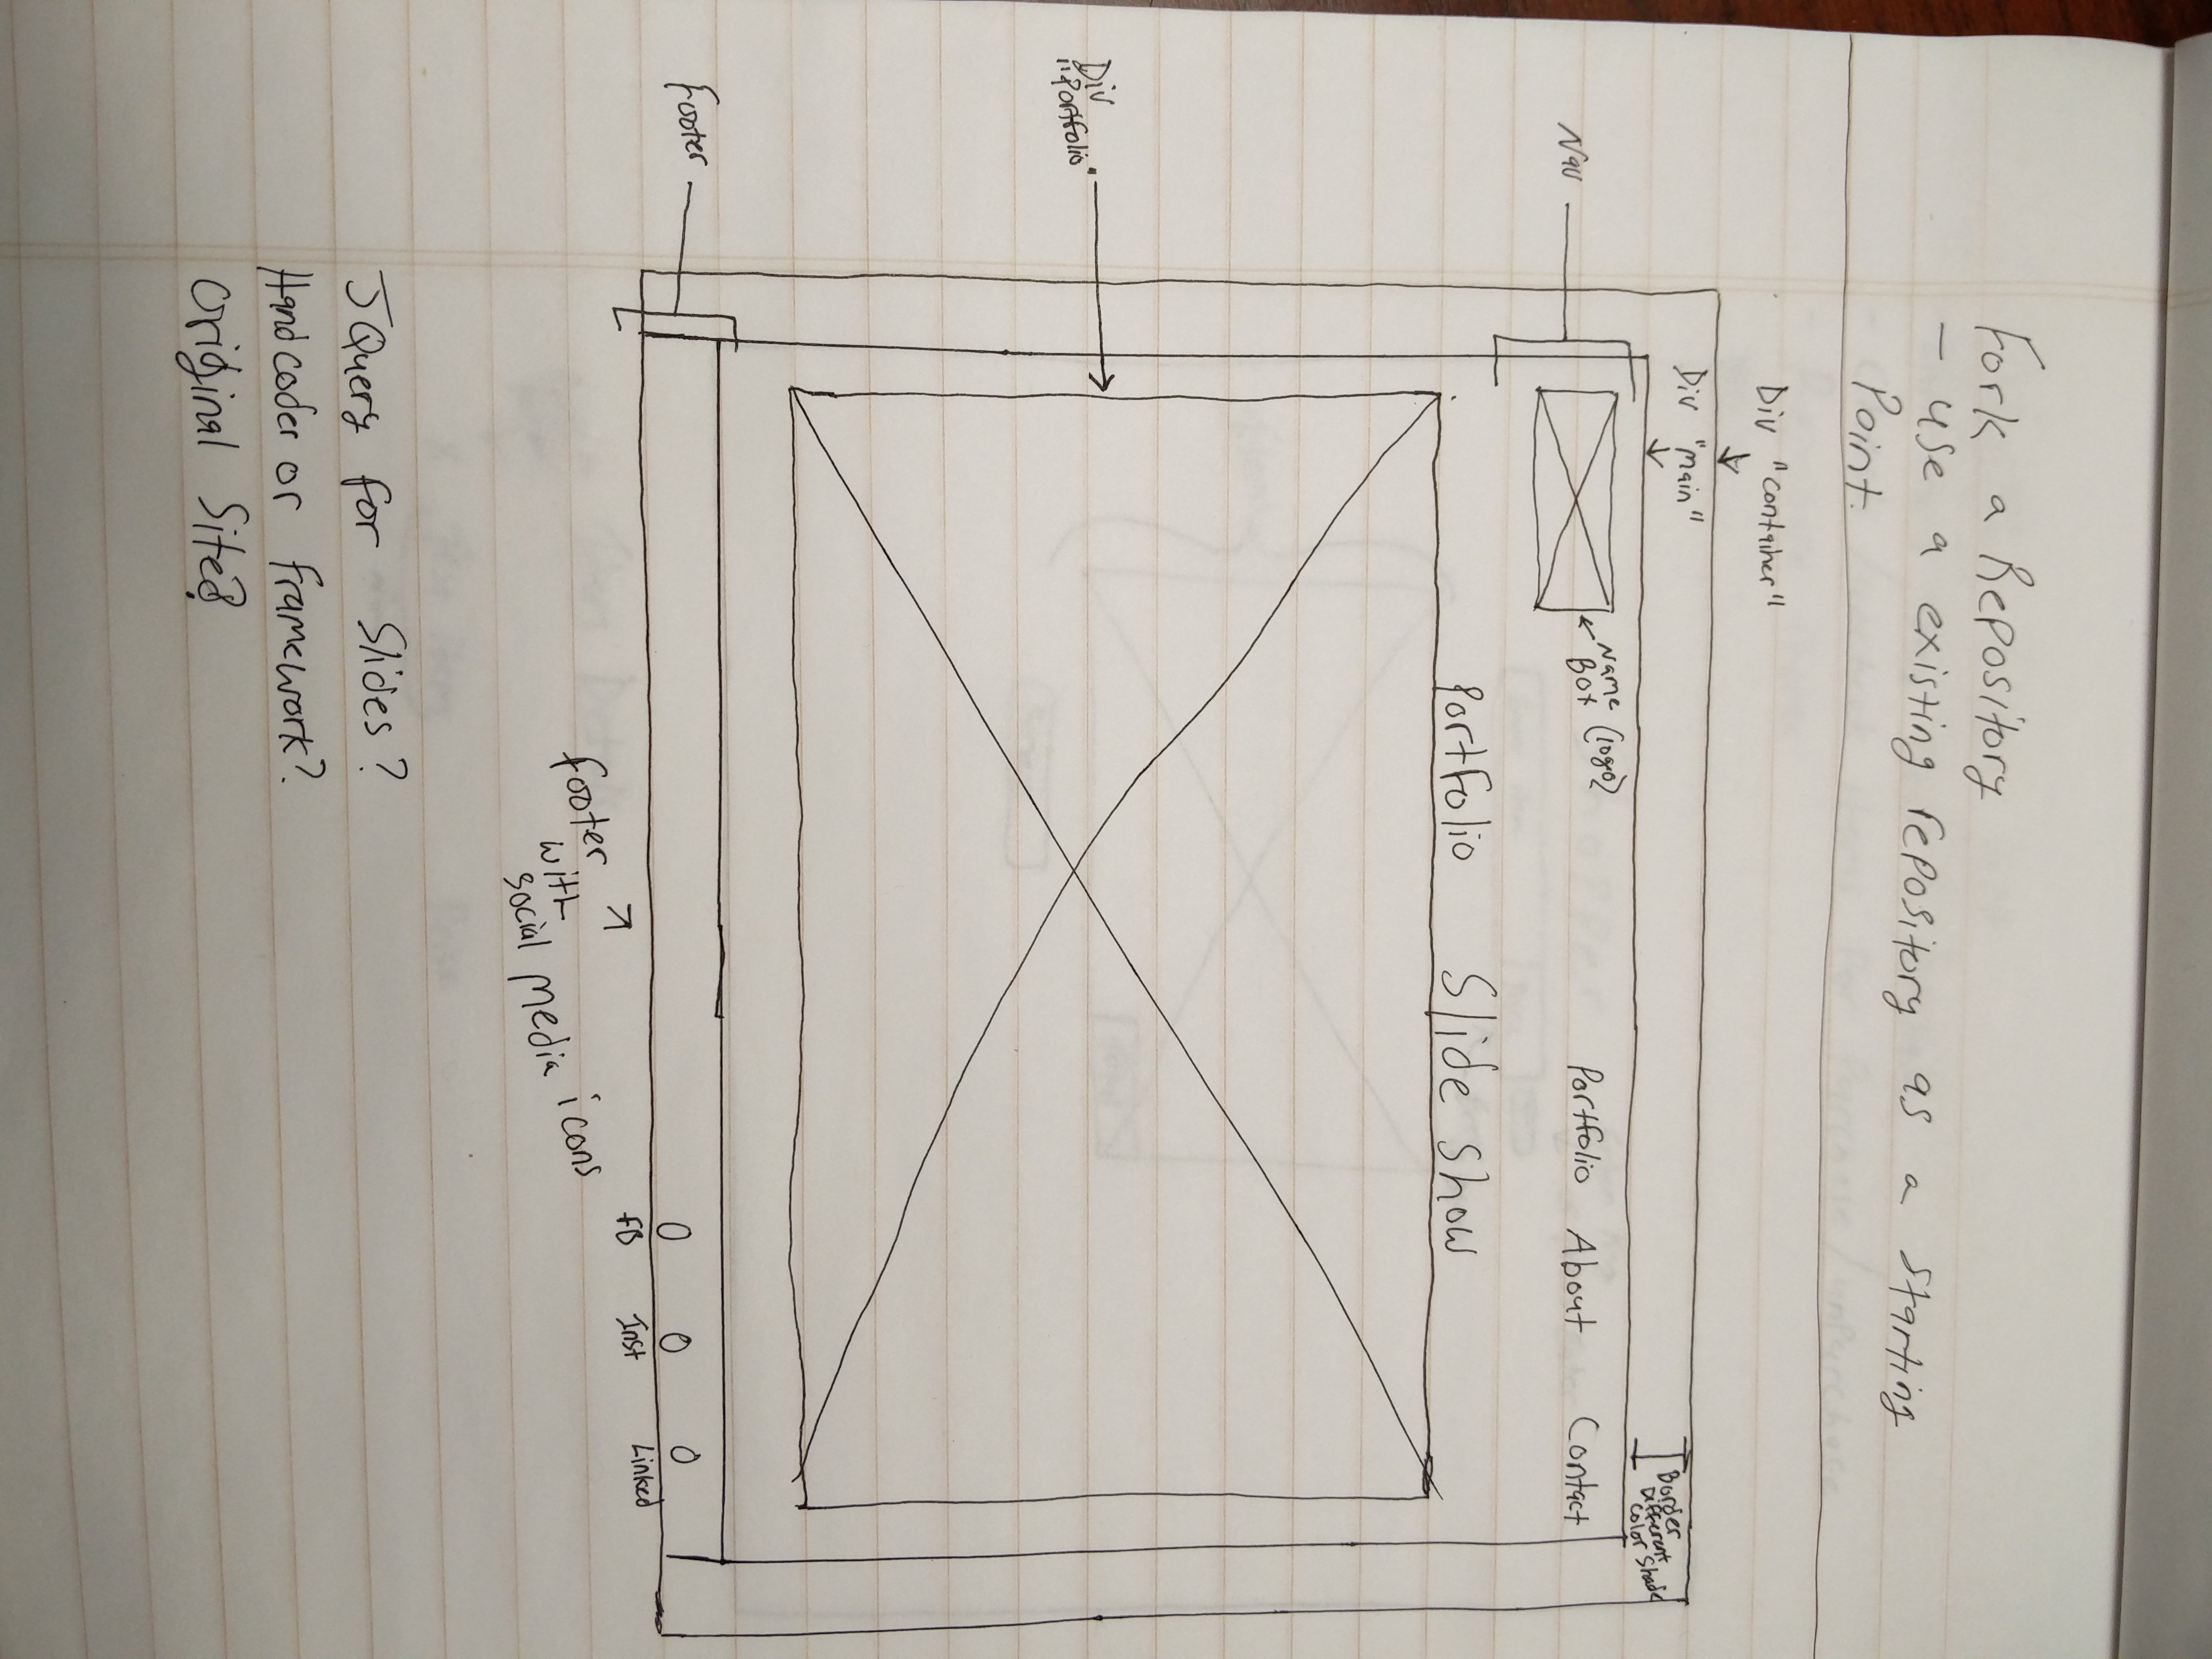 Fork a Repository
- use a existing repository as a starting
Point.
Div "container"
Div "main"
Border
Different
Color Shade
Nav
Name
Box (logo)
Portfolio About Contact
Portfolio Slide Show
Div
"Portfolio"
Footer
FB Inst Linked
footer
with
social media icons
JQuery for Slides?
Hand coder or framework?
Original Site?